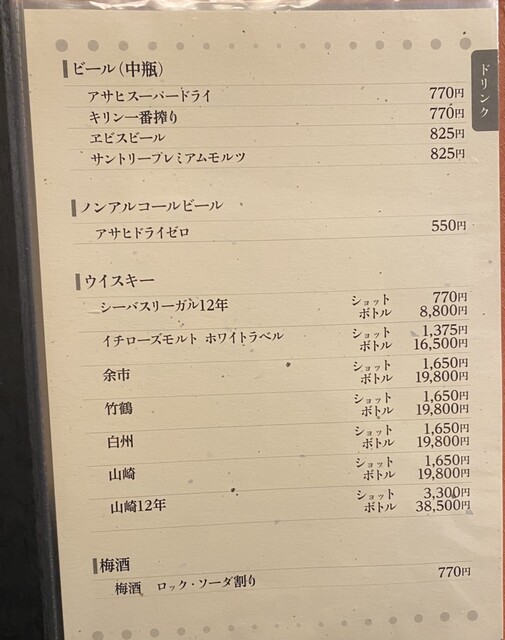 ドリンク
ビール(中瓶)
アサヒスーパードライ 770円
キリン一番搾り 770円
ヱビスビール 825円
サントリープレミアムモルツ 825円
ノンアルコールビール
アサヒドライゼロ 550円
ウイスキー
シーバスリーガル12年 ショット 770円
ボトル 8,800円
イチローズモルト ホワイトラベル ショット 1,375円
ボトル 16,500円
余市 ショット 1,650円
ボトル 19,800円
竹鶴 ショット 1,650円
ボトル 19,800円
白州 ショット 1,650円
ボトル 19,800円
山崎 ショット 1,650円
ボトル 19,800円
山崎12年 ショット 3,300円
ボトル 38,500円
梅酒
梅酒 ロック・ソーダ割り 770円